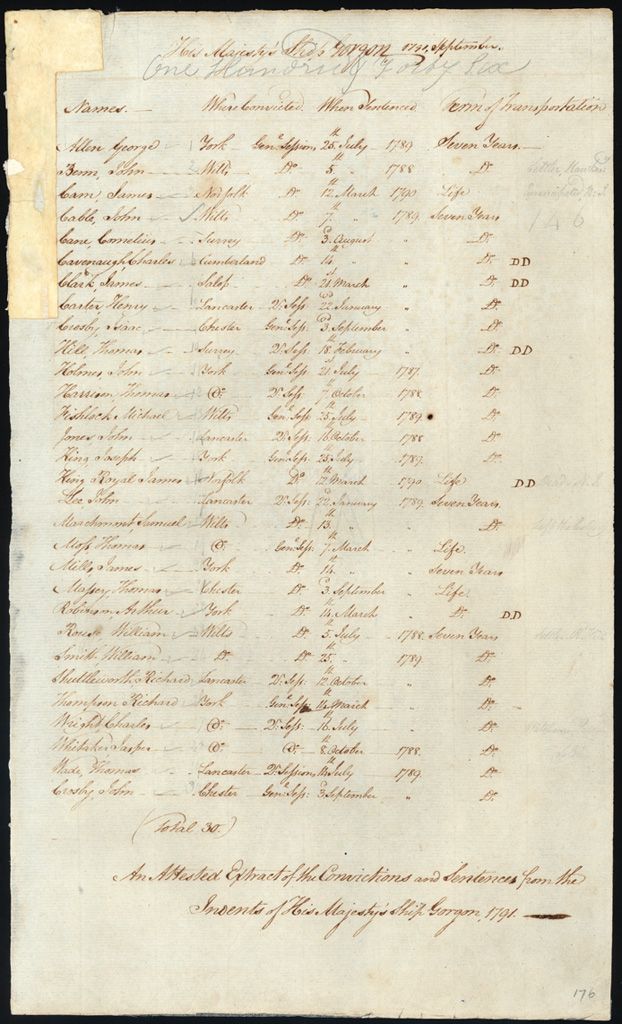 His Majesty's Ship Gorgon 1791, September.
One Hundred & Forty Six
Names. Where Convicted. When Sentenced Term of Transportation
Allen George 1 York Genl. Sessions 25th. July 1789. Seven Years.
Benn, John Wilts Do. 5th. " 1788. Do.
Cam, James Norfolk Do. 12th. March 1790 Life
Cable, John Wilts Do. 7th. " 1789. Seven Years
146
Cane, Cornelius Surrey Do. 3d. August " Do.
Cavenaugh Charles Cumberland Do. 14th. " " Do. DD
Clark, James Salop Do. 21st March " Do. DD
Carter, Henry Lancaster Qr. Sess. 22d January " Do.
Crosby, Isaac Chester Genl. Sess. 3d. September " Do.
Hill, Thomas Surrey Qr. Sess. 18th. February " Do. DD
Holmes, John York Genl. Sess. 21st July 1787. Do.
Harrison, Thomas Do. Qr. Sess. 7th. October 1788. Do.
Fishlock Michael Wilts Genl. Sess. 25th. July 1789. Do.
Jones John Lancaster Qr. Sess. 16th October 1788 Do.
King, Joseph York Genl. Sess. 25th. July 1789. Do.
King Royal James Norfolk Do. 12th. March 1790 Life DD
Lee John Lancaster Qr. Sess. 22d. January 1789. Seven Years.
Marchmont, Samuel Wilts Do. 13th. " " Do.
Moss Thomas Do. Genl. Sess. 7th. March " Life.
Mills, James York Do. 14th. " " Seven Years
Massey, Thomas Chester Do. 3d. September " Life.
Robinson Arthur York Do. 14th. March " Do. DD
Rouse William Wilts Do. 5th. July 1788. Seven Years
Smith William Do. Do. 25th. " 1789. Do.
Shuttleworth, Richard Lancaster Qr. Sess. 12th October " Do.
Thompson Richard York Genl. Sess. 14th March " Do.
Wright Charles Do. Qr. Sess. 16th July " Do.
Whitaker Jasper Do. Do. 8th. October 1788. Do.
Wade, Thomas Lancaster Qr. Sessions 14th July 1789. Do.
Crosby, John Chester Genl. Sess. 3d September " Do.
(Total 30.)
An Attested Extract of the Convictions and Sentences from the
Indents of His Majesty's Ship Gorgon, 1791.
176